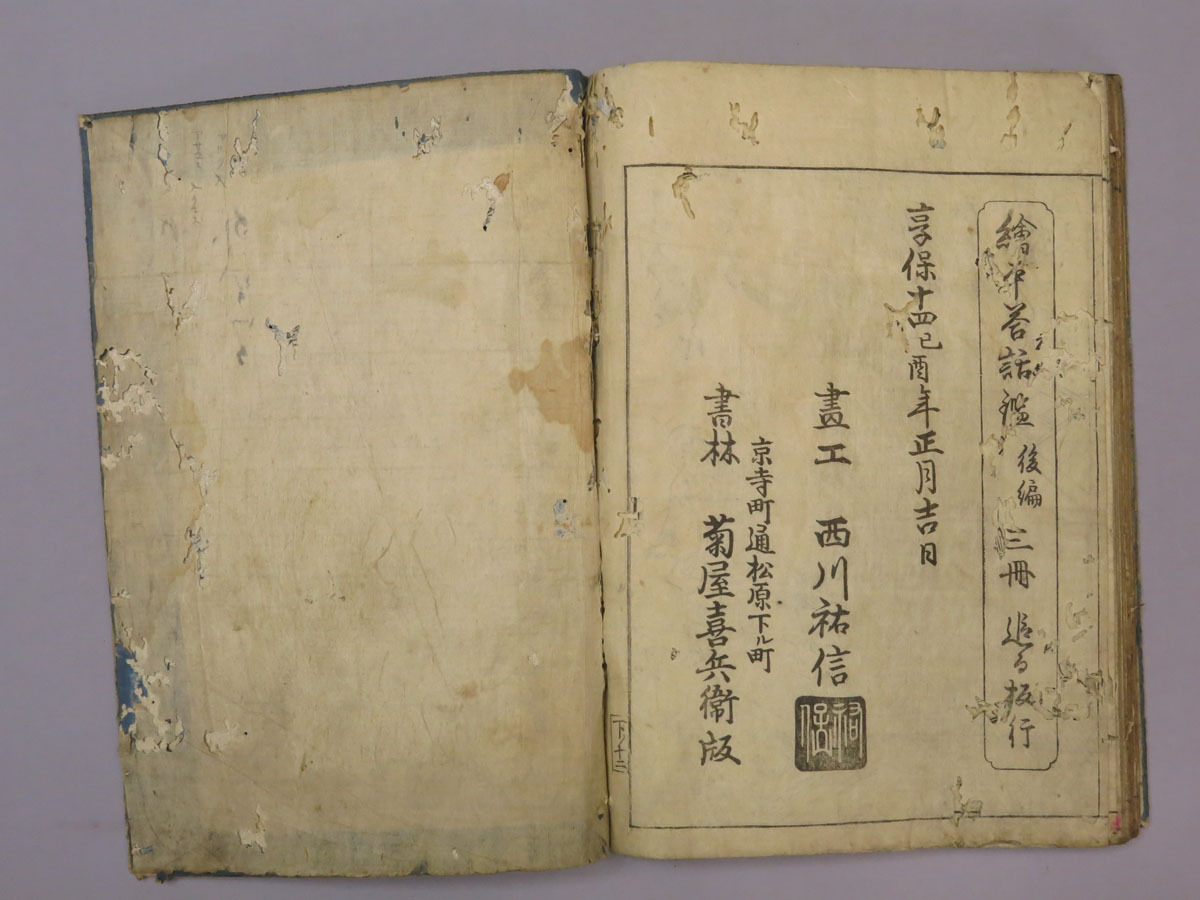 繪本答話鑑 後編 三冊 追而板行
享保十四己酉年正月吉日
畫工 西川祐信
祐信
京寺町通松原下ル町
書林 菊屋喜兵衞版
下ノ十二